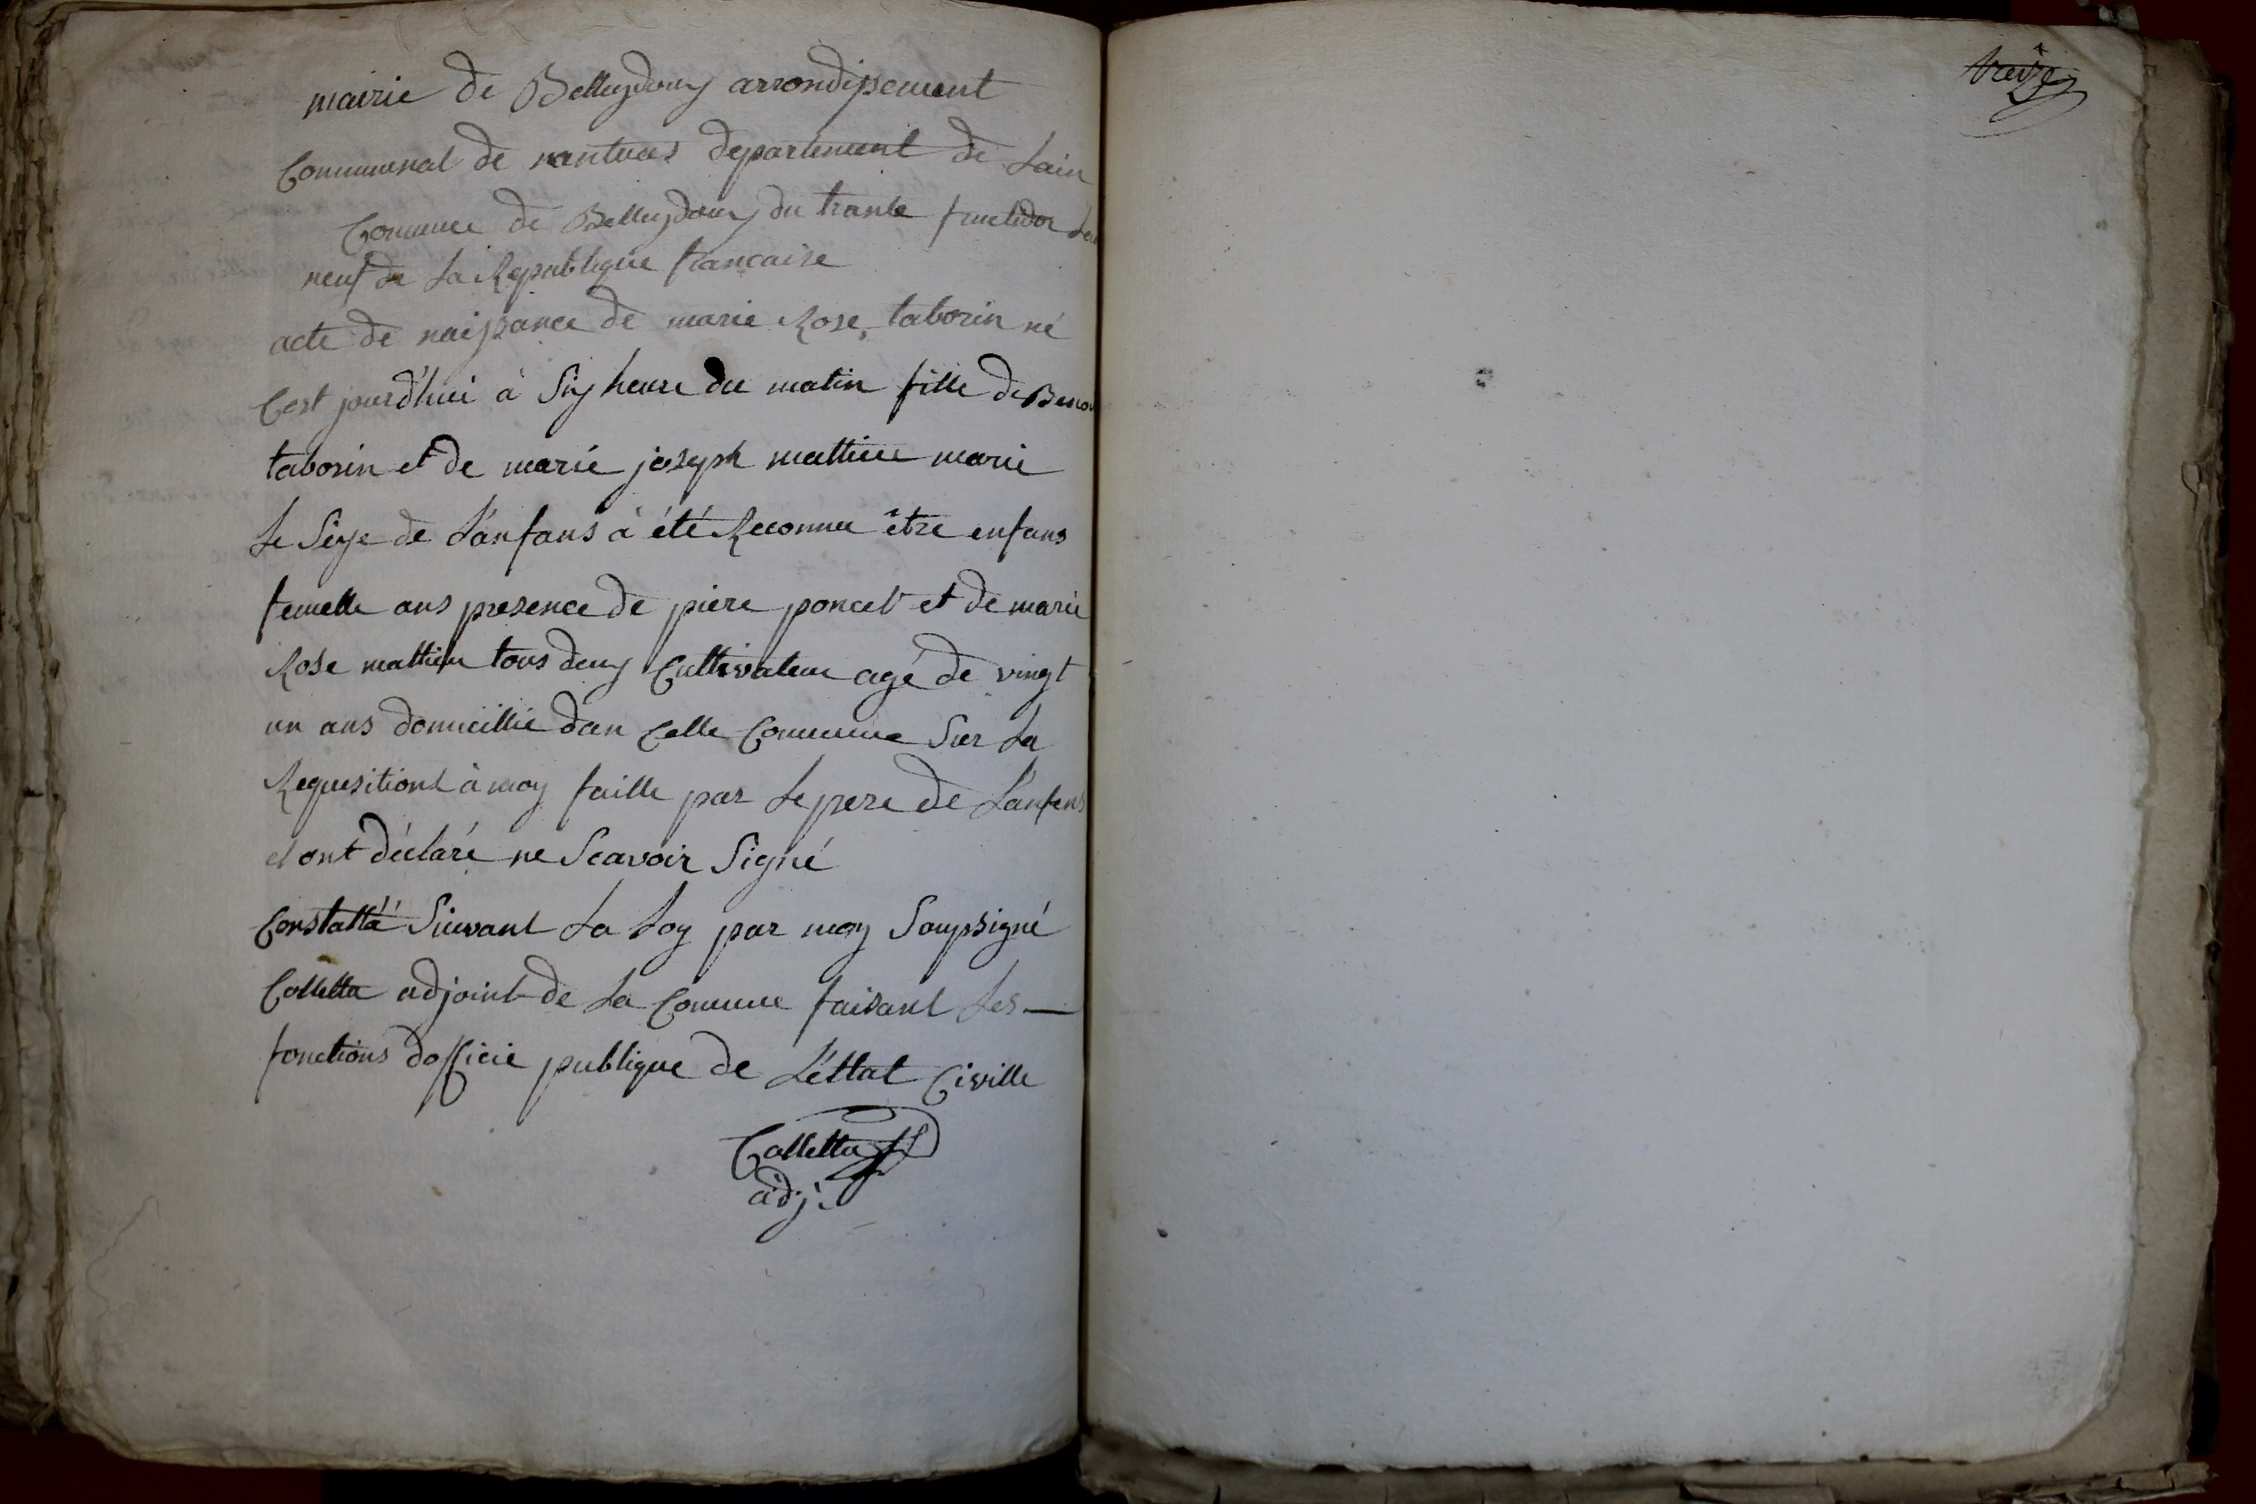 mairie de Belleydoux arrondissement
Communal de nantuas departement de Lain
Commune de Belleydoux du trante fructidor Lan
neuf de La Republique francaise
acte de naissance de marie Rose taborin né
Cest jourd'hui à Six heure du matin fille de Benoi
taborin et de marie joseph mathieu marie
Le Sexe de L'anfans à été Reconnu être enfans
femelle ans presence de piere poncet et de marie
Rose mathieu tous deux Cultivateur agé de vingt
un ans domicillié dan Cette Commune Sur La
Requesitiont à moy faitte par Le pere de L'anfans
et ont déclaré ne Scavoir Signé
Constatté Suivant La Loy par moy Soussigné
Colletta adjoint de La Comune faisant Les
fonctions dofficié publique de L'éttat Civille
Colletta
adj.
treize